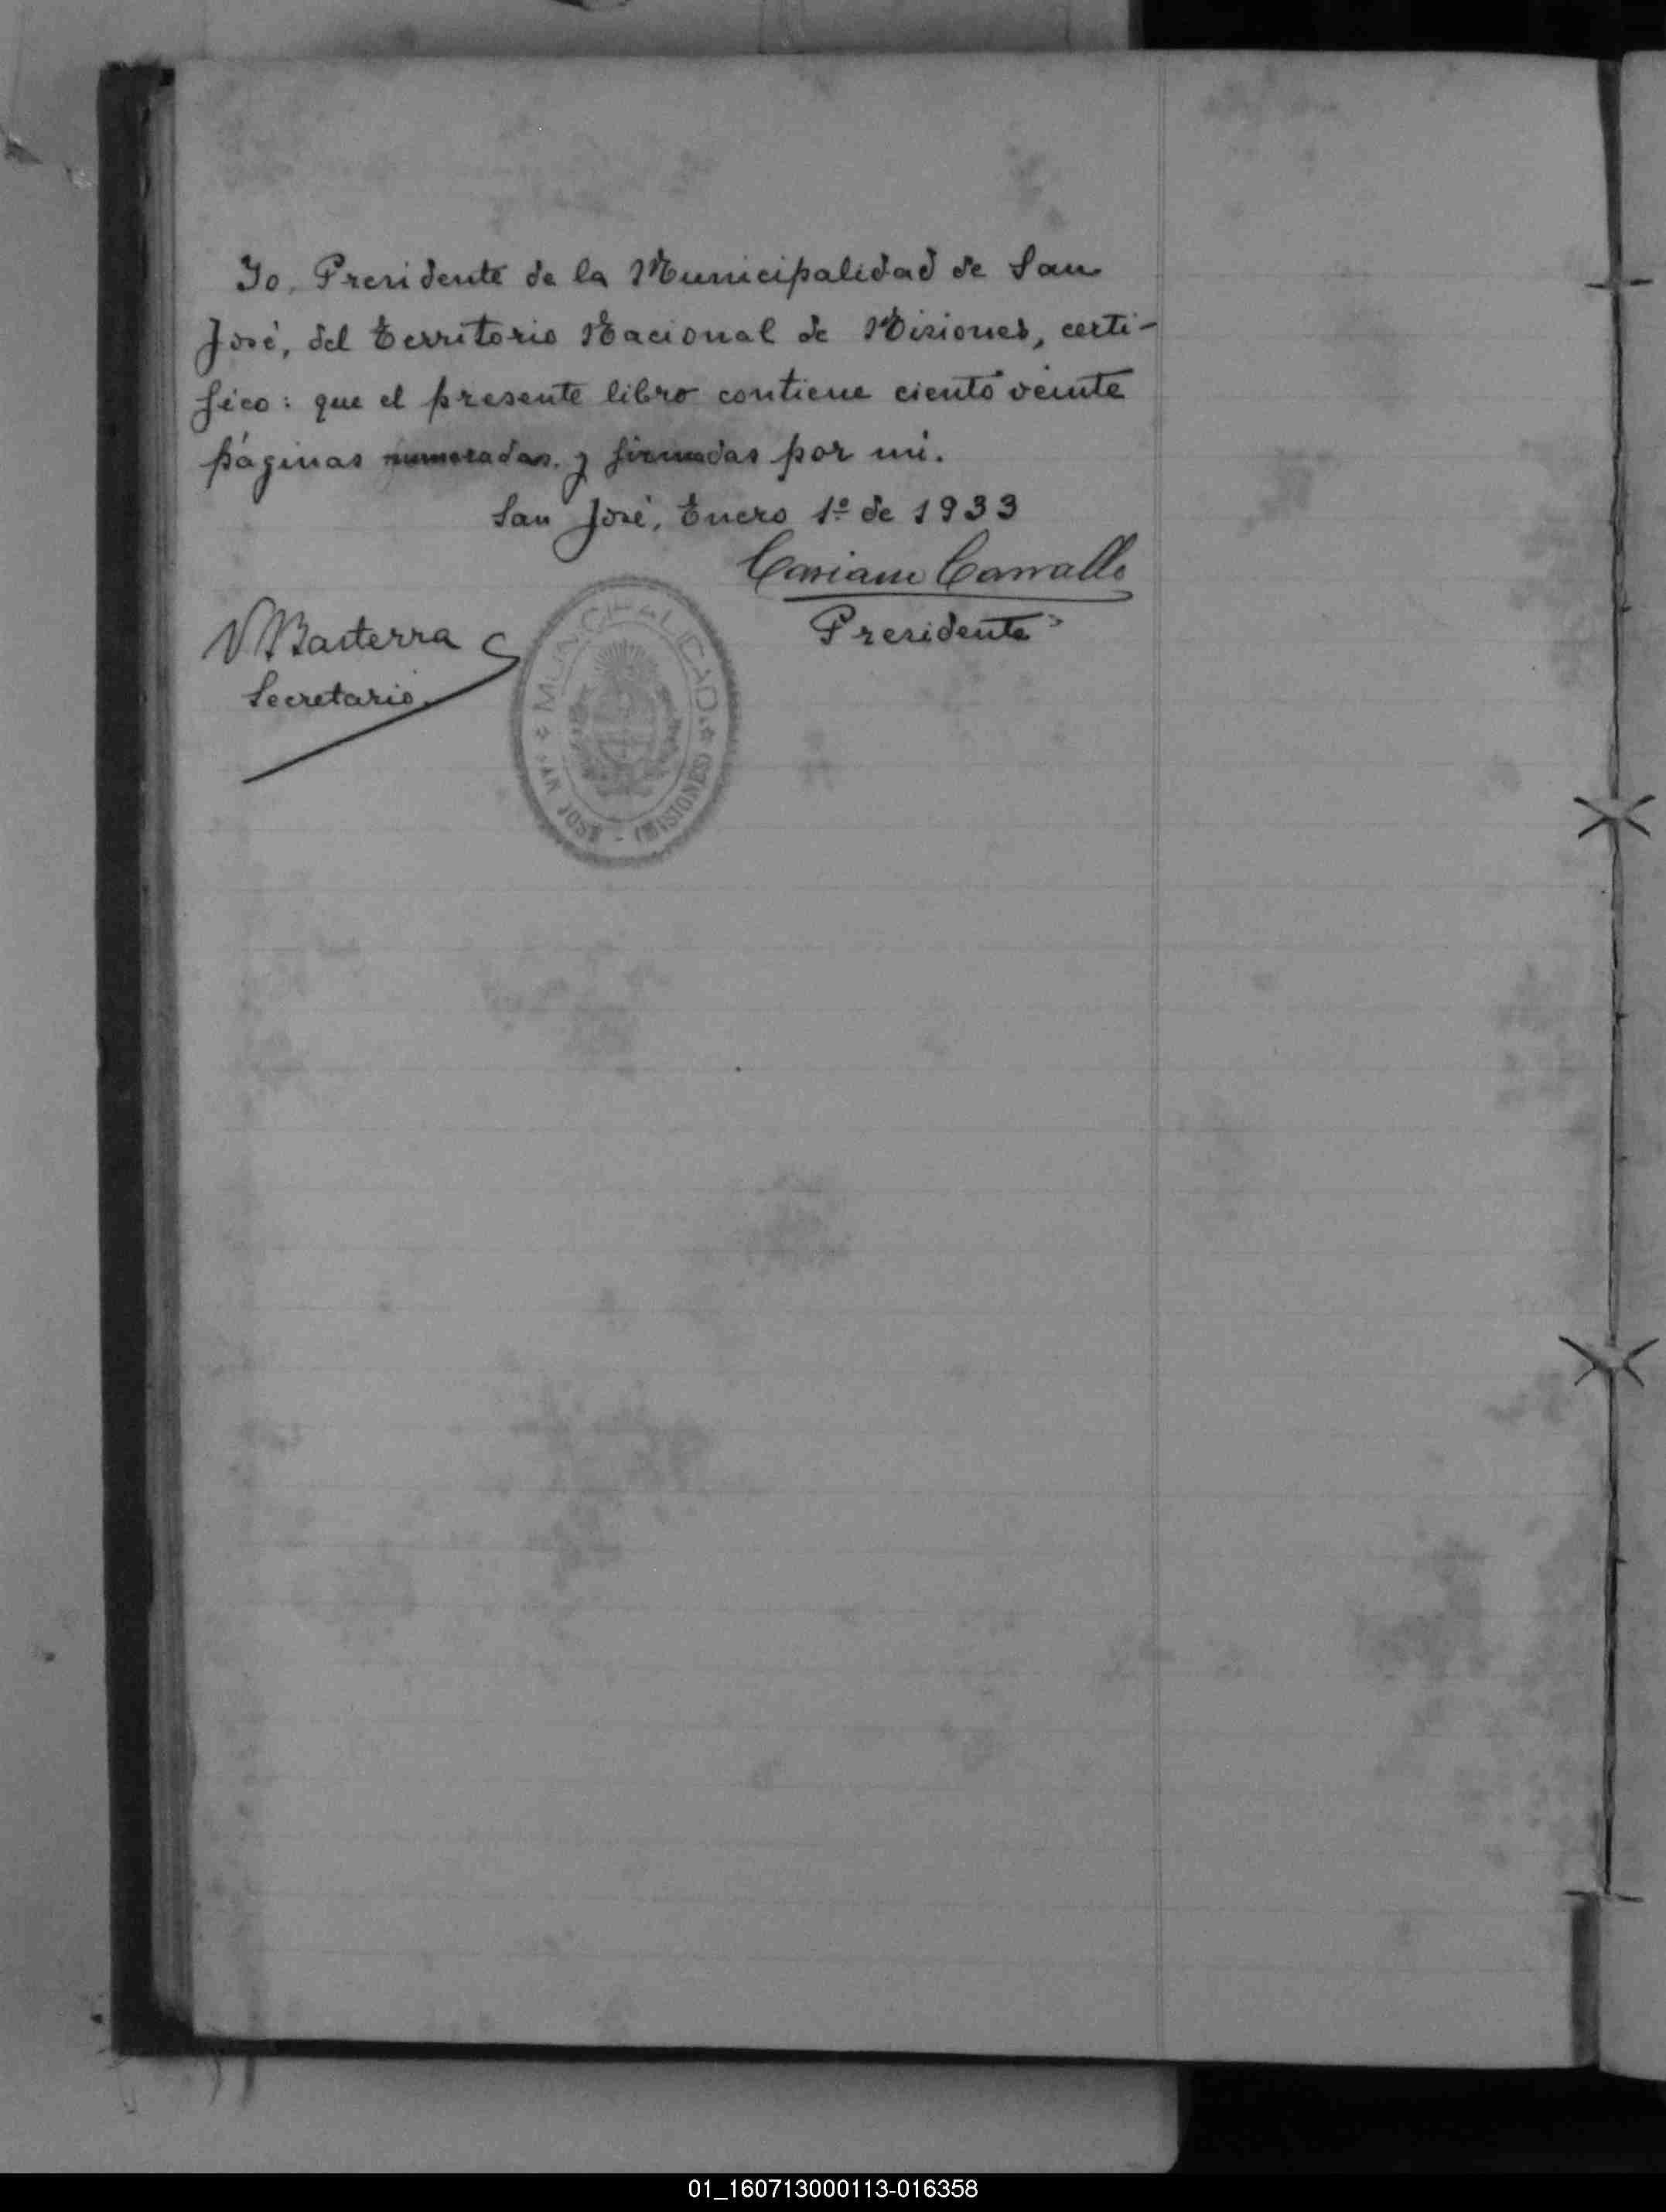 Yo, Presidente de la Municipalidad de San
José, del Territorio Nacional de Misiones, certi-
fico: que el presente libro contiene ciento veinte
páginas numeradas y firmadas por mi.
San José, Enero 1º de 1933
Presidente
V Basterra
Secretario
MUNICIPALIDAD
SAN JOSÉ - (MISIONES)
01_160713000113-016358